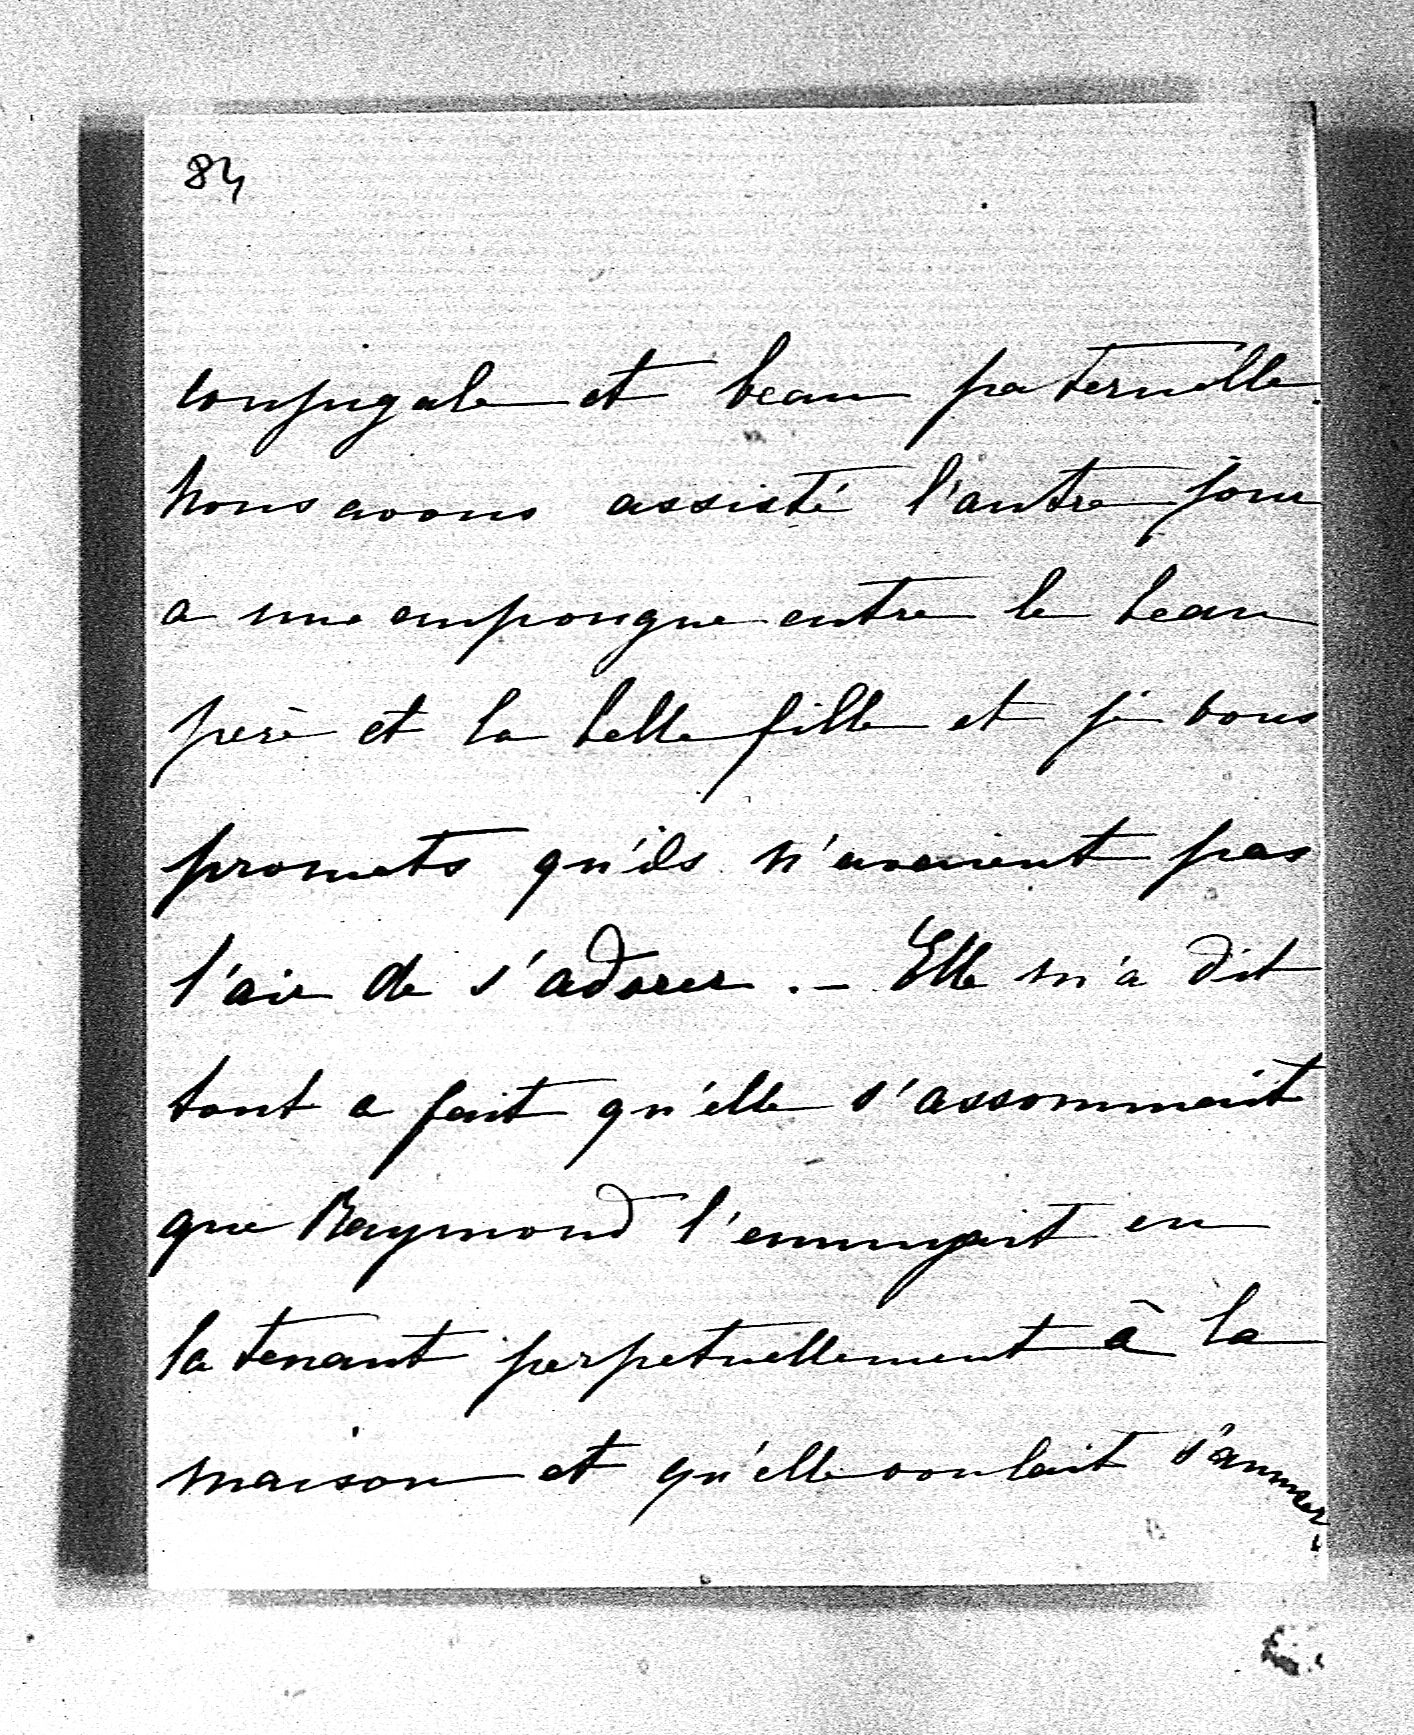 84
conjugale et beau paternelle.
nous avons assisté l'autre jour
a une empongne entre le beau
père et la belle fille et je vous
promets qu'ils n'avaient pas
l'air de s'adorer. – Elle m'a dit
tout a fait qu'elle s'assommait
que Raymond l'ennuyait en
la tenant perpetuellement à la
maison et qu'elle voulait s'amuser.